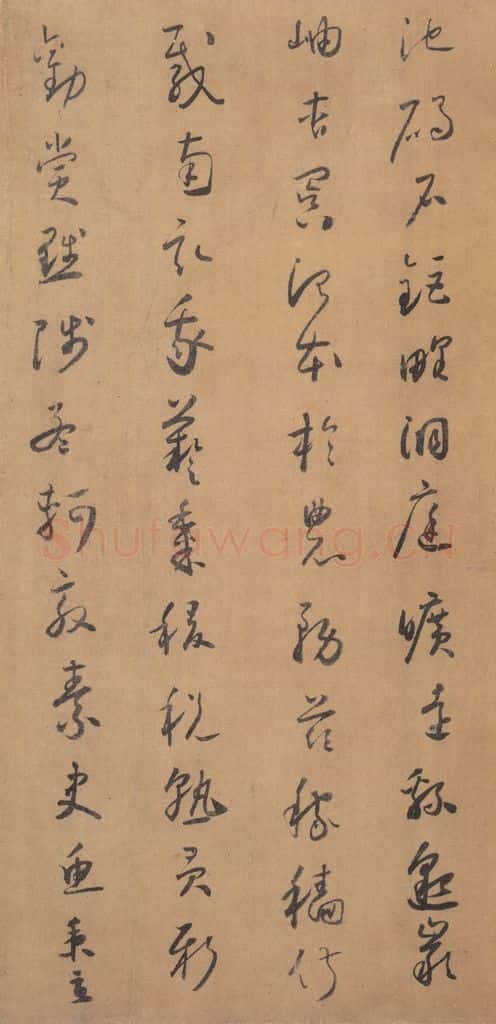 池碣石鉅野洞庭曠遠緜邈巖
岫杳冥治本於農務茲稼穡俶
載南畝我藝黍稷稅熟貢新
勸賞黜陟孟軻敦素史魚秉直
Shufawang.CN